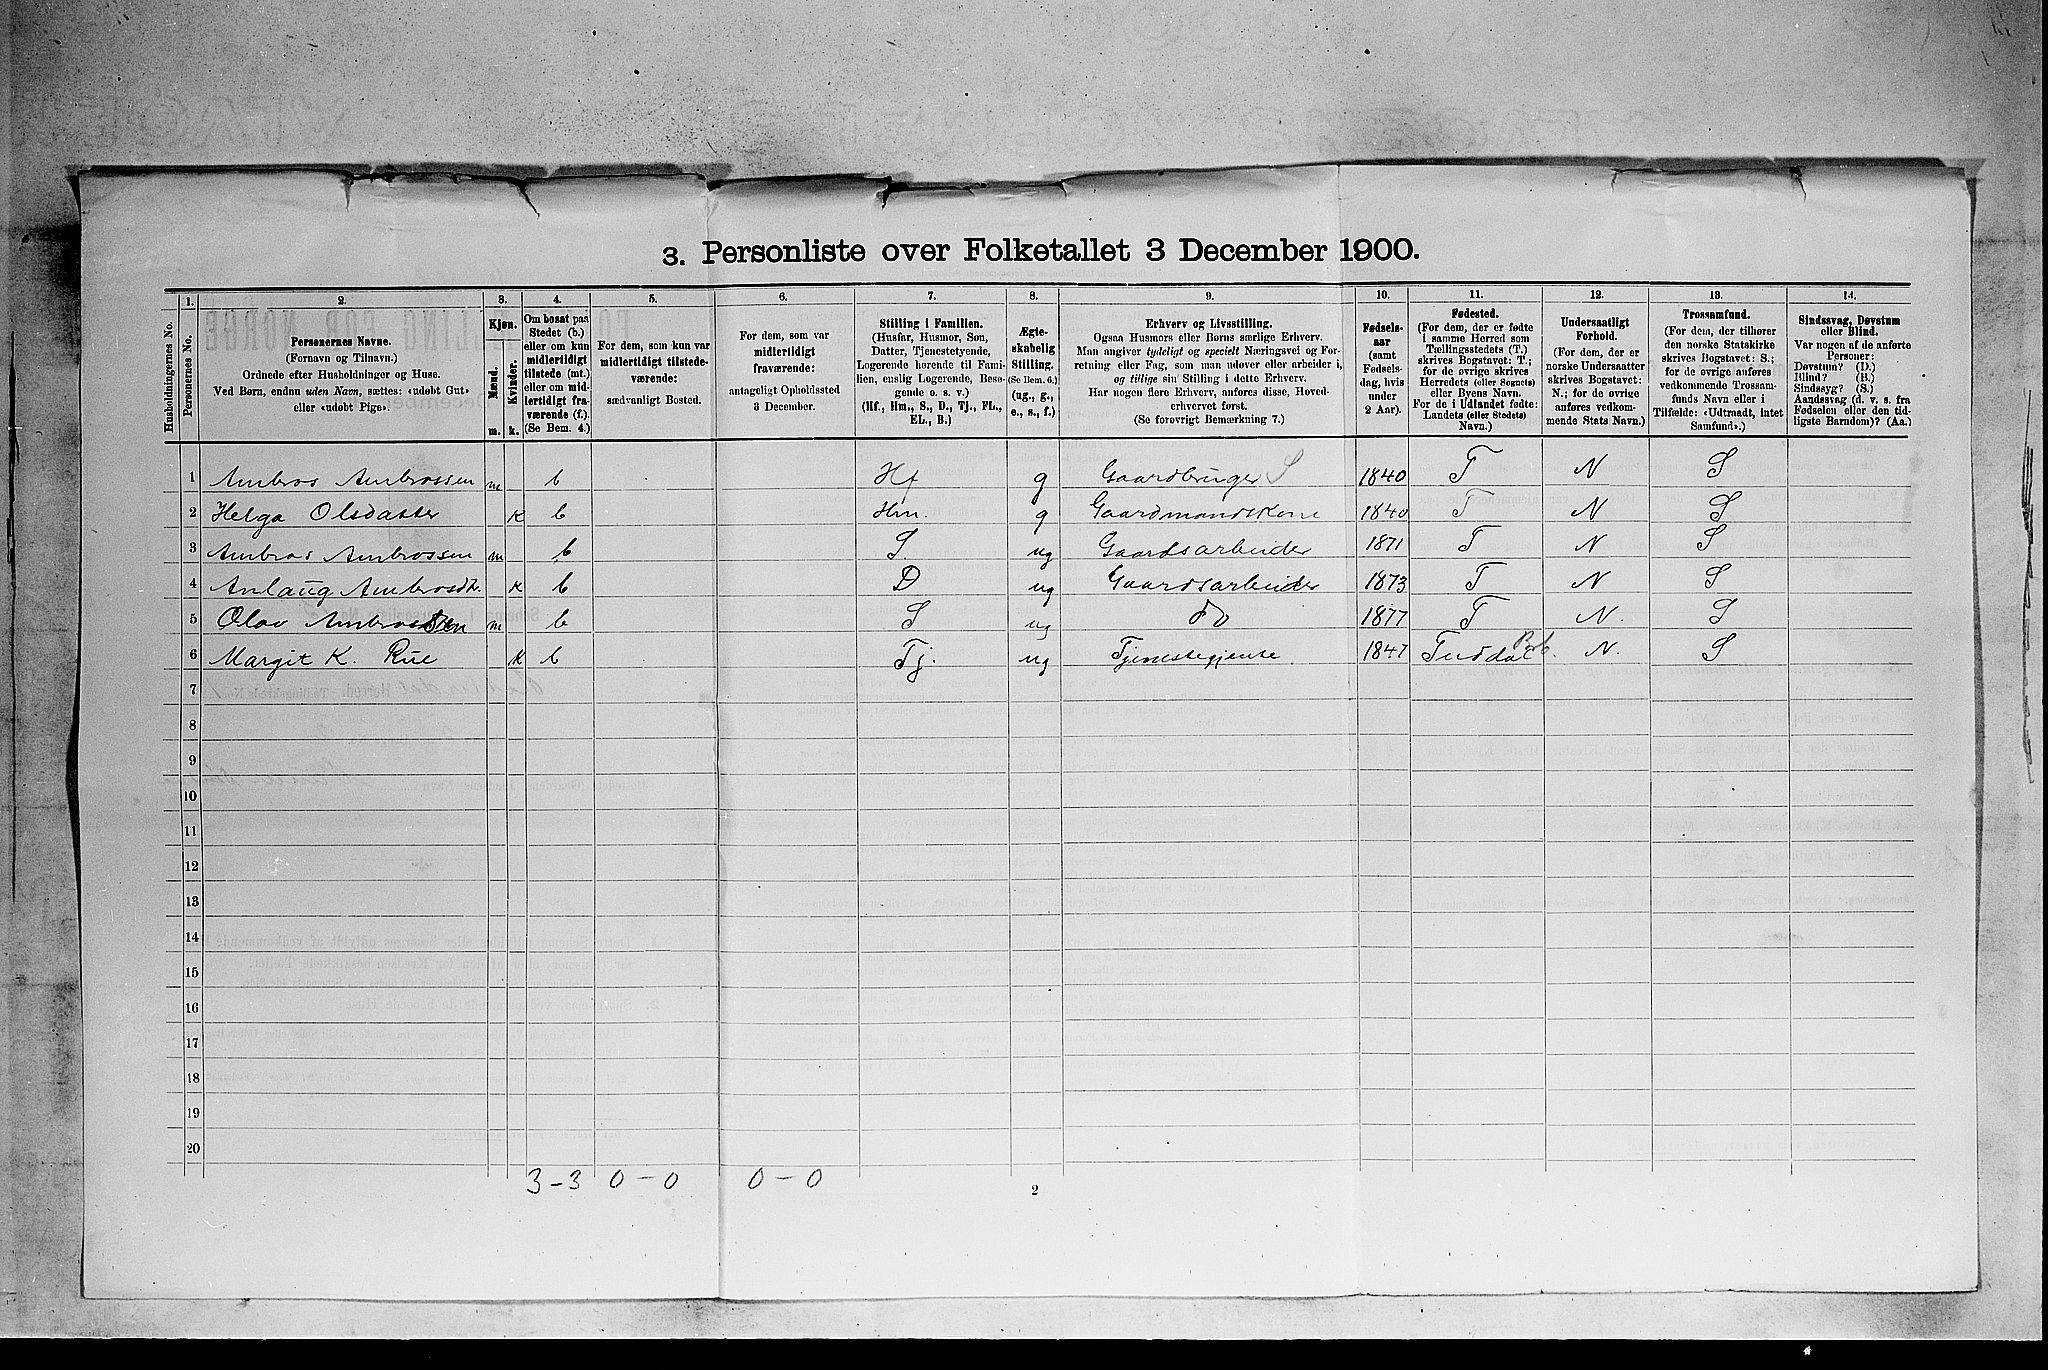 3. Personliste over Folketallet 3 December 1900.
1. 2. 3. 4. 5. 6. 7. 8. 9. 10. 11. 12. 13. 14.
Husholdningernes No.
Personernes No.
Personernes Navne.
(Fornavn og Tilnavn.)
Ordnede efter Husholdninger og Huse.
Ved Børn, endnu uden Navn, sættes: «udøbt Gut»
eller «udøbt Pige».
Kjøn.
Mænd.
Kvinder.
m. k.
Om bosat paa
Stedet (b.)
eller om kun
midlertidigt
tilstede (mt.)
eller om mid-
lertidigt fra-
værende (f.).
(Se Bem. 4.)
For dem, som kun var
midlertidigt tilstede-
værende:
sædvanligt Bosted.
For dem, som var
midlertidigt
fraværende:
antageligt Opholdssted
3 December.
Stilling i Familien.
(Husfar, Husmor, Søn,
Datter, Tjenestetyende,
Logerende hørende til Fami-
lien, enslig Logerende, Besø-
gende o. s. v.)
(Hf., Hm., S., D., Tj., FL.,
EL., B.)
Ægte-
skabelig
Stilling.
(Se Bem. 6.)
(ug., g.,
e., s., f.)
Erhverv og Livsstilling.
Ogsaa Husmors eller Børns særlige Erhverv.
Man angiver tydeligt og specielt Næringsvei og For-
retning eller Fag, som man udøver eller arbeider i,
og tillige sin Stilling i dette Erhverv.
Har nogen flere Erhverv, anføres disse, Hoved-
erhvervet først.
(Se forøvrigt Bemærkning 7.)
Fødsels-
aar
(samt
Fødsels-
dag, hvis
under
2 Aar).
Fødested.
(For dem, der er fødte
i samme Herred som
Tællingsstedets (T.)
skrives Bogstavet: T.;
for de øvrige skrives
Herredets (eller Sognets)
eller Byens Navn.
For de i Udlandet fødte:
Landets (eller Stedets)
Navn.)
Undersaatligt
Forhold.
(For dem, der er
norske Undersaatter
skrives Bogstavet:
N.; for de øvrige
anføres vedkom-
mende Stats Navn.)
Trossamfund.
(For dem, der tilhører
den norske Statskirke
skrives Bogstavet: S.;
for de øvrige anføres
vedkommende Trossam-
funds Navn eller i
Tilfælde: «Udtraadt, intet
Samfund».)
Sindssvag, Døvstum
eller Blind.
Var nogen af de anførte
Personer:
Døvstum? (D.)
Blind? (B.)
Sindssyg? (S.)
Aandssvag (d. v. s. fra
Fødselen eller den tid-
ligste Barndom)? (Aa.)
1 Ambros Ambrossen m b Hf g Gaardbruger S 1840 T N S
2 Helga Olsdatter k b Hm. g Gaardmandskone 1840 T N S
3 Ambros Ambrossen m b S. ug Gaardsarbeider 1871 T N S
4 Anlaug Ambrosdt. k b D ug Gaardsarbeider 1873 T N S
5 Olav Ambrossen m b S ug Do 1877 T N. S
6 Margit K. Rue k b Tj. ug Tjenestegjente. 1847 Tuddal N. S
7
8
9
10
11
12
13
14
15
16
17
18
19
20
3-3 0-0 0-0
2